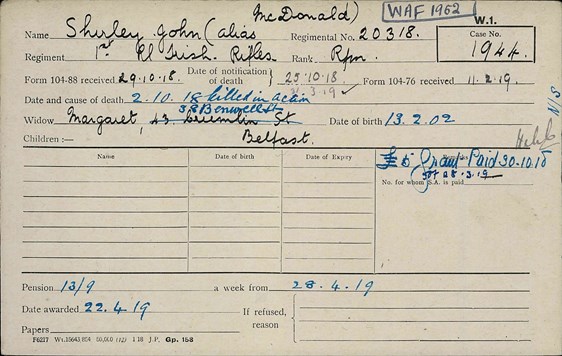 McDonald) WAF 1962 W.1.
Name Shirley John (alias Regimental No. 20318. Case No.
Regiment 1st Rl Irish Rifles Rank Rfm. 1944.
Form 104-88 received 29.10.18. Date of notification of death } 25.10.18 Form 104-76 received 11.2.19.
31.3.19
Date and cause of death 2.10.18 killed in action
N/S
Widow Margaret, 43 Crumlin St Date of birth 13.2.02
Children:— Belfast.
Name Date of birth Date of Expiry £5 Grant Paid 30.10.18
No. for whom S.A. is paid
Pension 13/9 a week from 28.4.19
Date awarded 22.4.19 If refused, reason
Papers
F6217 Wt.18643/824 50,000 (12) 1 18 J.P. Gp. 158